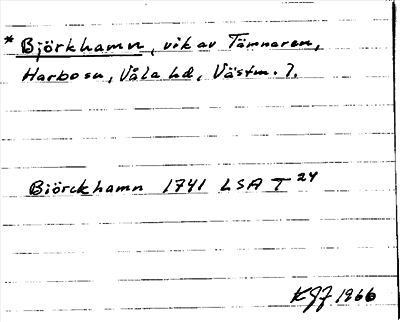 * Björkhamn, vik av Tämnaren,
Harbo sn, Våla hd, Västm. l.
Biörckhamn 1741 LSA T 24
KGJ 1966